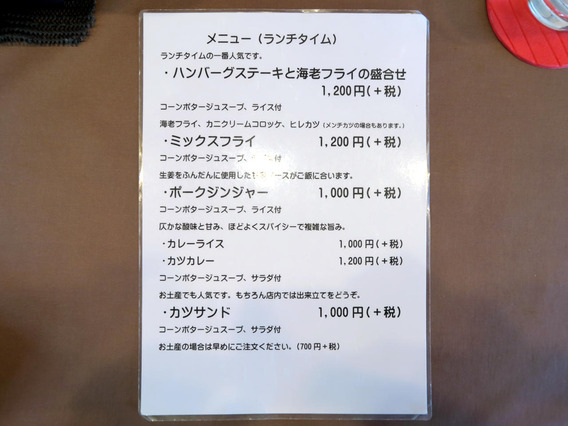 メニュー（ランチタイム）
ランチタイムの一番人気です。
・ハンバーグステーキと海老フライの盛合せ
1,200円(＋税)
コーンポタージュスープ、ライス付
海老フライ、カニクリームコロッケ、ヒレカツ（メンチカツの場合もあります。）
・ミックスフライ 1,200円(＋税)
コーンポタージュスープ、 付
生姜をふんだんに使用した ースがご飯に合います。
・ポークジンジャー 1,000円(＋税)
コーンポタージュスープ、ライス付
仄かな酸味と甘み、ほどよくスパイシーで複雑な旨み。
・カレーライス 1,000円(＋税)
・カツカレー 1,200円(＋税)
コーンポタージュスープ、サラダ付
お土産でも人気です。もちろん店内では出来立てをどうぞ。
・カツサンド 1,000円(＋税)
コーンポタージュスープ、サラダ付
お土産の場合は早めにご注文ください。(700円＋税)